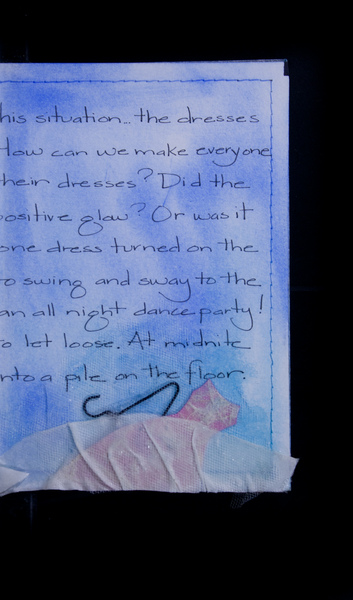 his situation... the dresses
How can we make everyone
their dresses? Did the
positive glow? Or was it
one dress turned on the
to swing and sway to the
an all night dance party!
to let loose. At midnite
into a pile on the floor.